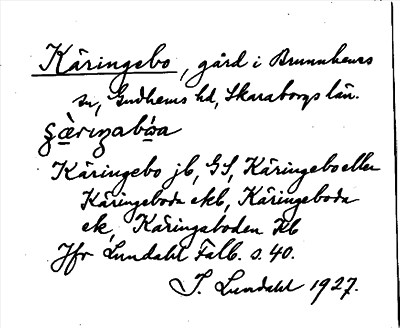 Käringebo, gård i Brunnhems
sn, Gudhems hd, Skaraborgs län.
Käringebo jb, GS, Käringebo eller
Käringeboda ekb, Käringeboda
ek, Käringaboden Kb
Jfr Lundahl Falb. s. 40.
I. Lundahl 1927.